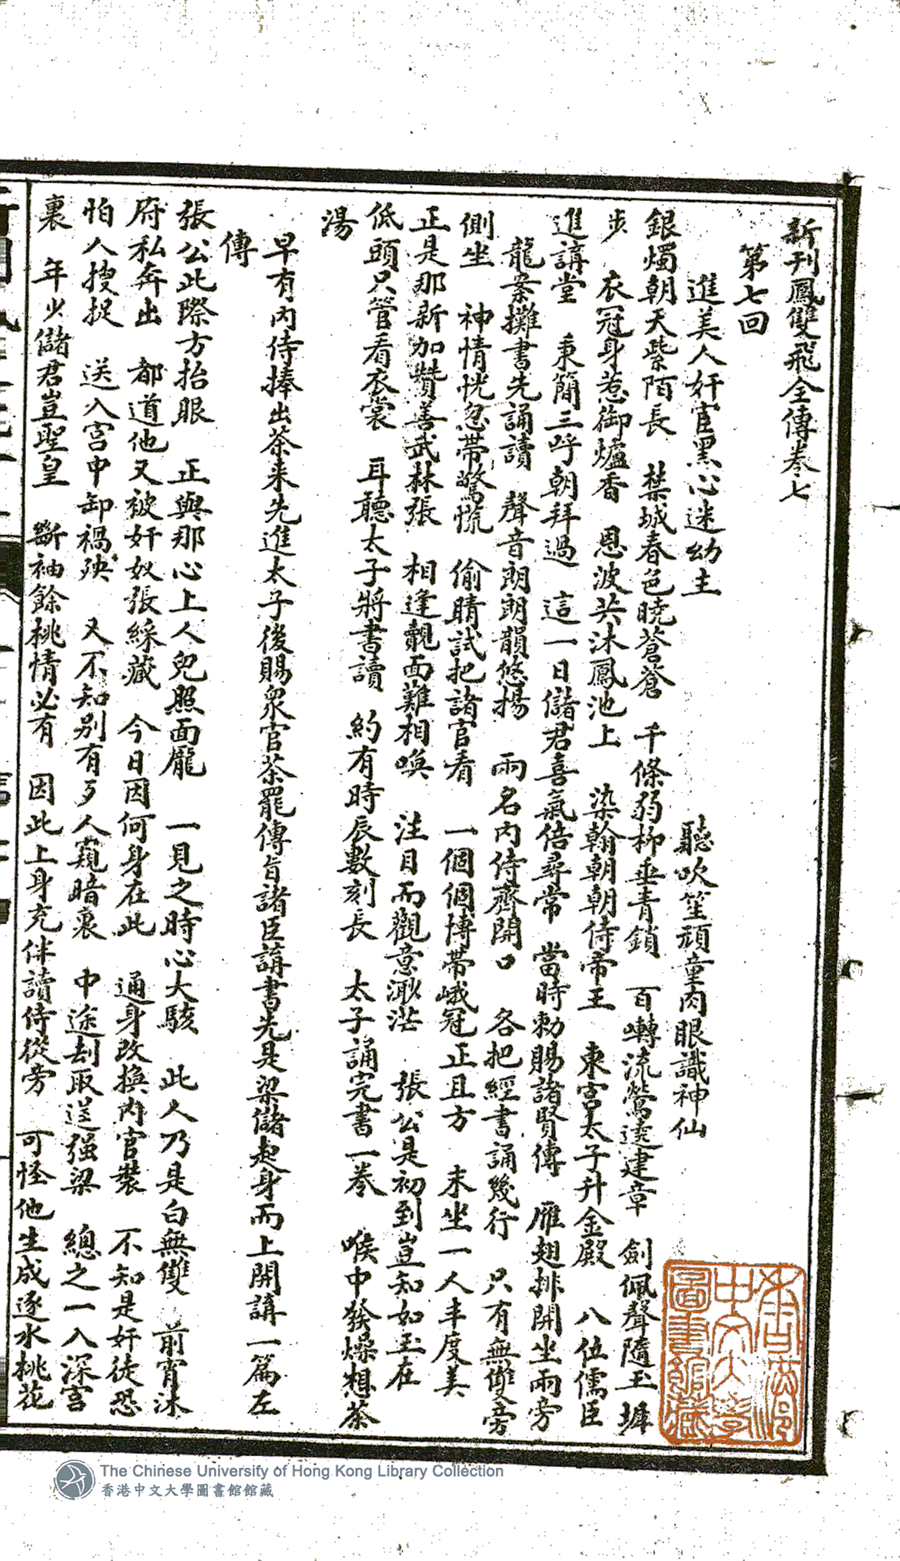 新刊鳳雙飛全傳卷七
第七回
進美人奸宦黑心迷幼主 聽吹笙頑童肉眼識神仙
銀燭朝天紫陌長 禁城春色曉蒼蒼 千條弱柳垂青鎖 百囀流鶯遶建章 劍佩聲隨玉墀
步 衣冠身惹御爐香 恩波共沐鳳池上 染翰朝朝侍帝王 東宮太子升金殿 八位儒臣
進講堂 東簡三呼朝拜過 這一日儲君喜氣倍尋常 當時勅賜諸賢傅 雁翅排開坐兩旁
龍案攤書先誦讀 聲音朗朗韻悠揚 兩名內侍齊開口 各把經書誦幾行 只有無雙旁
側坐 神情恍忽帶驚慌 偷睛試把諸官看 一個個博帶峨冠正且方 末坐一人丰度美
正是那新加贊善武林張 相逢覿面難相喚 注目而觀意渺茫 張公是初到豈知如玉在
低頭只管看衣裳 耳聽太子將書讀 約有時辰數刻長 太子誦完書一卷 喉中發燥想茶
湯
早有內侍捧出茶來先進太子後賜衆官茶罷傳旨諸臣講書先是梁儲起身而上開講一篇左
傳
張公此際方抬眼 正與那心上人兒照面龐 一見之時心大駭 此人乃是白無雙 前宵沐
府私奔出 都道他又被奸奴張綵藏 今日因何身在此 通身改換內官裝 不知是奸徒恐
怕人搜捉 送入宫中卸禍殃 又不知别有歹人窺暗裏 中途刦取送强梁 總之一入深宫
裏 年少儲君豈聖皇 斷袖餘桃情必有 因此上身充伴讀侍從旁 可怪他生成逐水桃花
香港中文大學圖書館藏
The Chinese University of Hong Kong Library Collection
香港中文大學圖書館館藏